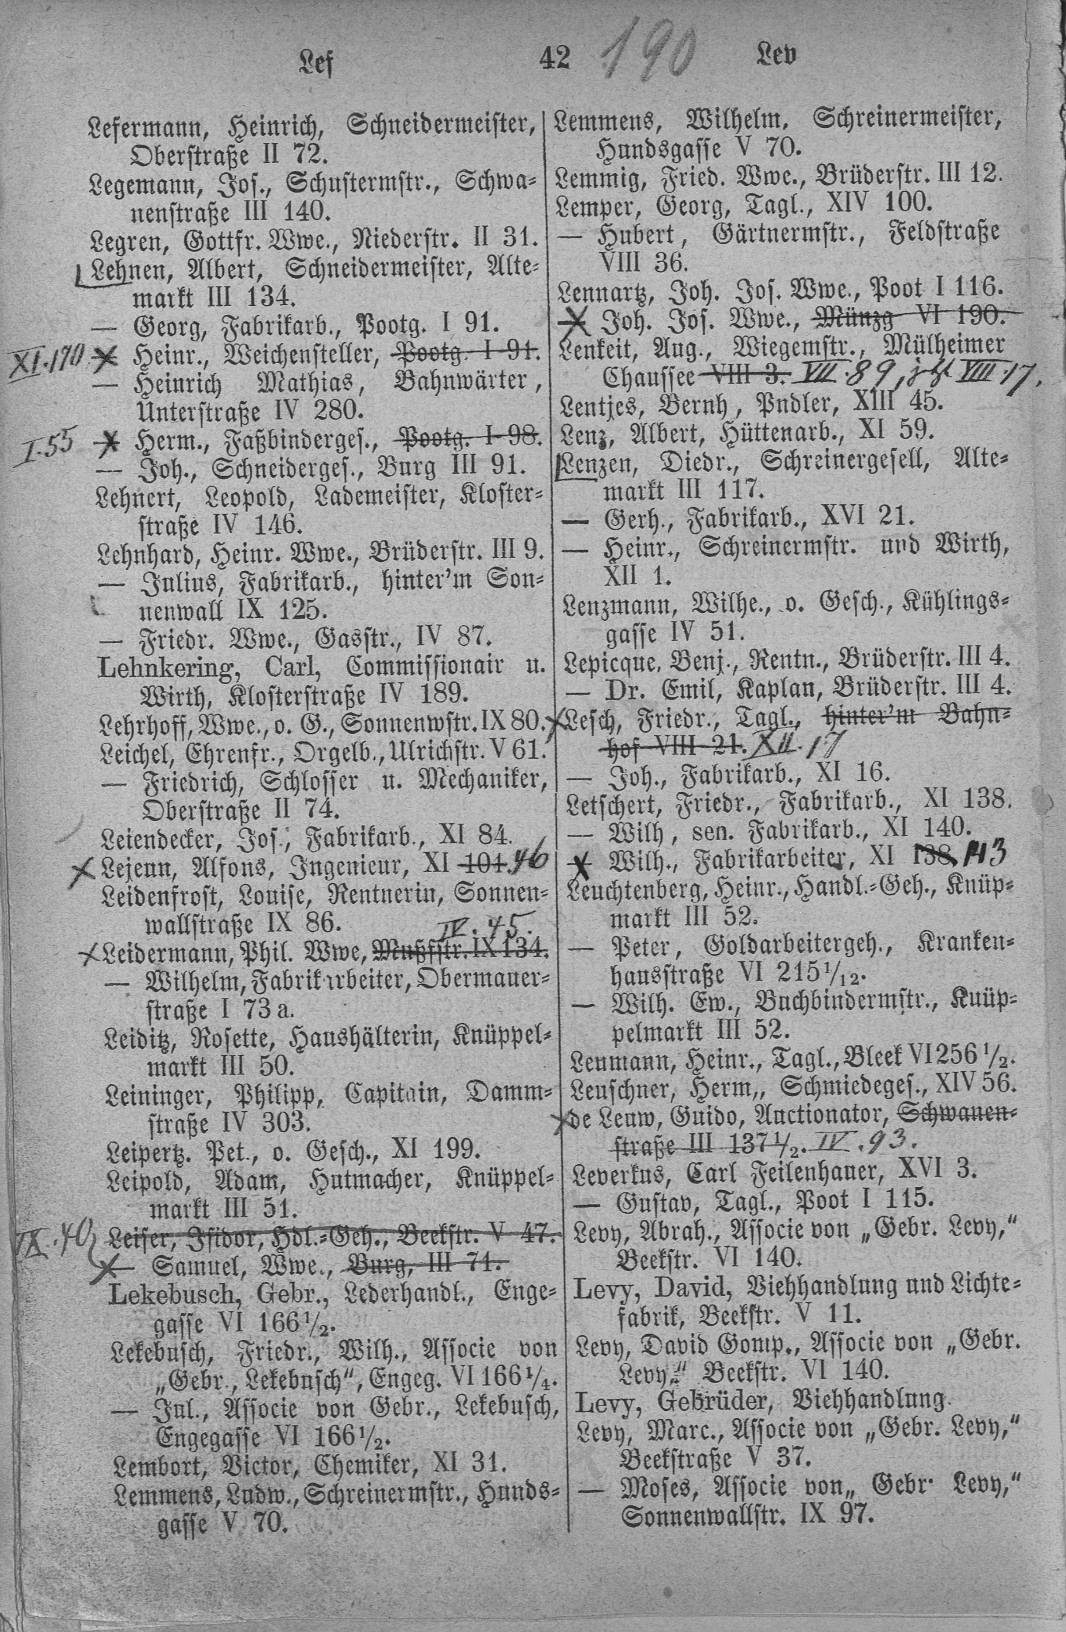 Lef 42 190 Lev
Lefermann, Heinrich, Schneidermeister,
Oberstraße II 72.
Legemann, Jos., Schustermstr., Schwa-
nenstraße III 140.
Legren, Gottfr. Wwe., Niederstr. II 31.
Lehnen, Albert, Schneidermeister, Alte-
markt III 134.
— Georg, Fabrikarb., Pootg. I 91.
XI.170 X Heinr., Weichensteller, Pootg. I 91.
— Heinrich Mathias, Bahnwärter,
Unterstraße IV 280.
I.55 X Herm., Faßbinderges., Pootg. I 98.
— Joh., Schneiderges., Burg III 91.
Lehnert, Leopold, Lademeister, Kloster-
straße IV 146.
Lehnhard, Heinr. Wwe., Brüderstr. III 9.
— Julius, Fabrikarb., hinter'm Son-
nenwall IX 125.
— Friedr. Wwe., Gasstr., IV 87.
Lehnkering, Carl, Commissionair u.
Wirth, Klosterstraße IV 189.
Lehrhoff, Wwe., o. G., Sonnenwstr. IX 80.
Leichel, Ehrenfr., Orgelb., Ulrichstr. V 61.
— Friedrich, Schlosser u. Mechaniker,
Oberstraße II 74.
Leiendecker, Jos., Fabrikarb., XI 84.
X Lejeun, Alfons, Ingenieur, XI 101. 46
Leidenfrost, Louise, Rentnerin, Sonnen-
wallstraße IX 86. IV. 45.
X Leidermann, Phil. Wwe, Mußfstr. IX 134.
— Wilhelm, Fabrikarbeiter, Obermauer-
straße I 73 a.
Leiditz, Rosette, Haushälterin, Knüppel-
markt III 50.
Leininger, Philipp, Capitain, Damm-
straße IV 303.
Leipertz. Pet., o. Gesch., XI 199.
Leipold, Adam, Hutmacher, Knüppel-
markt III 51.
Leiser, Isidor, Hdl.-Geh., Beekstr. V 47.
IX.40 X — Samuel, Wwe., Burg, III 71.
Lekebusch, Gebr., Lederhandl., Enge-
gasse VI 166 1/2.
Lekebusch, Friedr., Wilh., Associe von
„Gebr., Lekebusch“, Engeg. VI 166 1/4.
— Jul., Associe von Gebr., Lekebusch,
Engegasse VI 166 1/2.
Lembort, Victor, Chemiker, XI 31.
Lemmens, Ludw., Schreinermstr., Hunds-
gasse V 70.
Lemmens, Wilhelm, Schreinermeister,
Hundsgasse V 70.
Lemmig, Fried. Wwe., Brüderstr. III 12.
Lemper, Georg, Tagl., XIV 100.
— Hubert, Gärtnermstr., Feldstraße
VIII 36.
Lennartz, Joh. Jos. Wwe., Poot I 116.
X Joh. Jos. Wwe., Münzg VI 190.
Lenkeit, Aug., Wiegemstr., Mülheimer
Chaussee VIII 3. VII. 89, jtzt VIII.17.
Lentjes, Bernh, Pndler, XIII 45.
Lenz, Albert, Hüttenarb., XI 59.
Lenzen, Diedr., Schreinergesell, Alte-
markt III 117.
— Gerh., Fabrikarb., XVI 21.
— Heinr., Schreinermstr. und Wirth,
XII 1.
Lenzmann, Wilhe., o. Gesch., Kühlings-
gasse IV 51.
Lepicque, Benj., Rentn., Brüderstr. III 4.
— Dr. Emil, Kaplan, Brüderstr. III 4.
X Lesch, Friedr., Tagl., hinter'm Bahn-
hof VIII 21. XII. 17
— Joh., Fabrikarb., XI 16.
Letschert, Friedr., Fabrikarb., XI 138.
— Wilh, sen. Fabrikarb., XI 140.
X Wilh., Fabrikarbeiter, XI 138. 113
Leuchtenberg, Heinr., Handl.-Geh., Knüp-
markt III 52.
— Peter, Goldarbeitergeh., Kranken-
hausstraße VI 215 1/12.
— Wilh. Ew., Buchbindermstr., Knüp-
pelmarkt III 52.
Leumann, Heinr., Tagl., Bleek VI 256 1/2.
Leuschner, Herm,, Schmiedeges., XIV 56.
X de Leuw, Guido, Auctionator, Schwanen-
straße III 137 1/2. IV. 93.
Leverkus, Carl Feilenhauer, XVI 3.
— Gustav, Tagl., Poot I 115.
Levy, Abrah., Associe von „Gebr. Levy,“
Beekstr. VI 140.
Levy, David, Viehhandlung und Lichte-
fabrik, Beekstr. V 11.
Levy, David Gomp., Associe von „Gebr.
Levy,“ Beekstr. VI 140.
Levy, Gebrüder, Viehhandlung.
Levy, Marc., Associe von „Gebr. Levy,“
Beekstraße V 37.
— Moses, Associe von „ Gebr. Levy,“
Sonnenwallstr. IX 97.